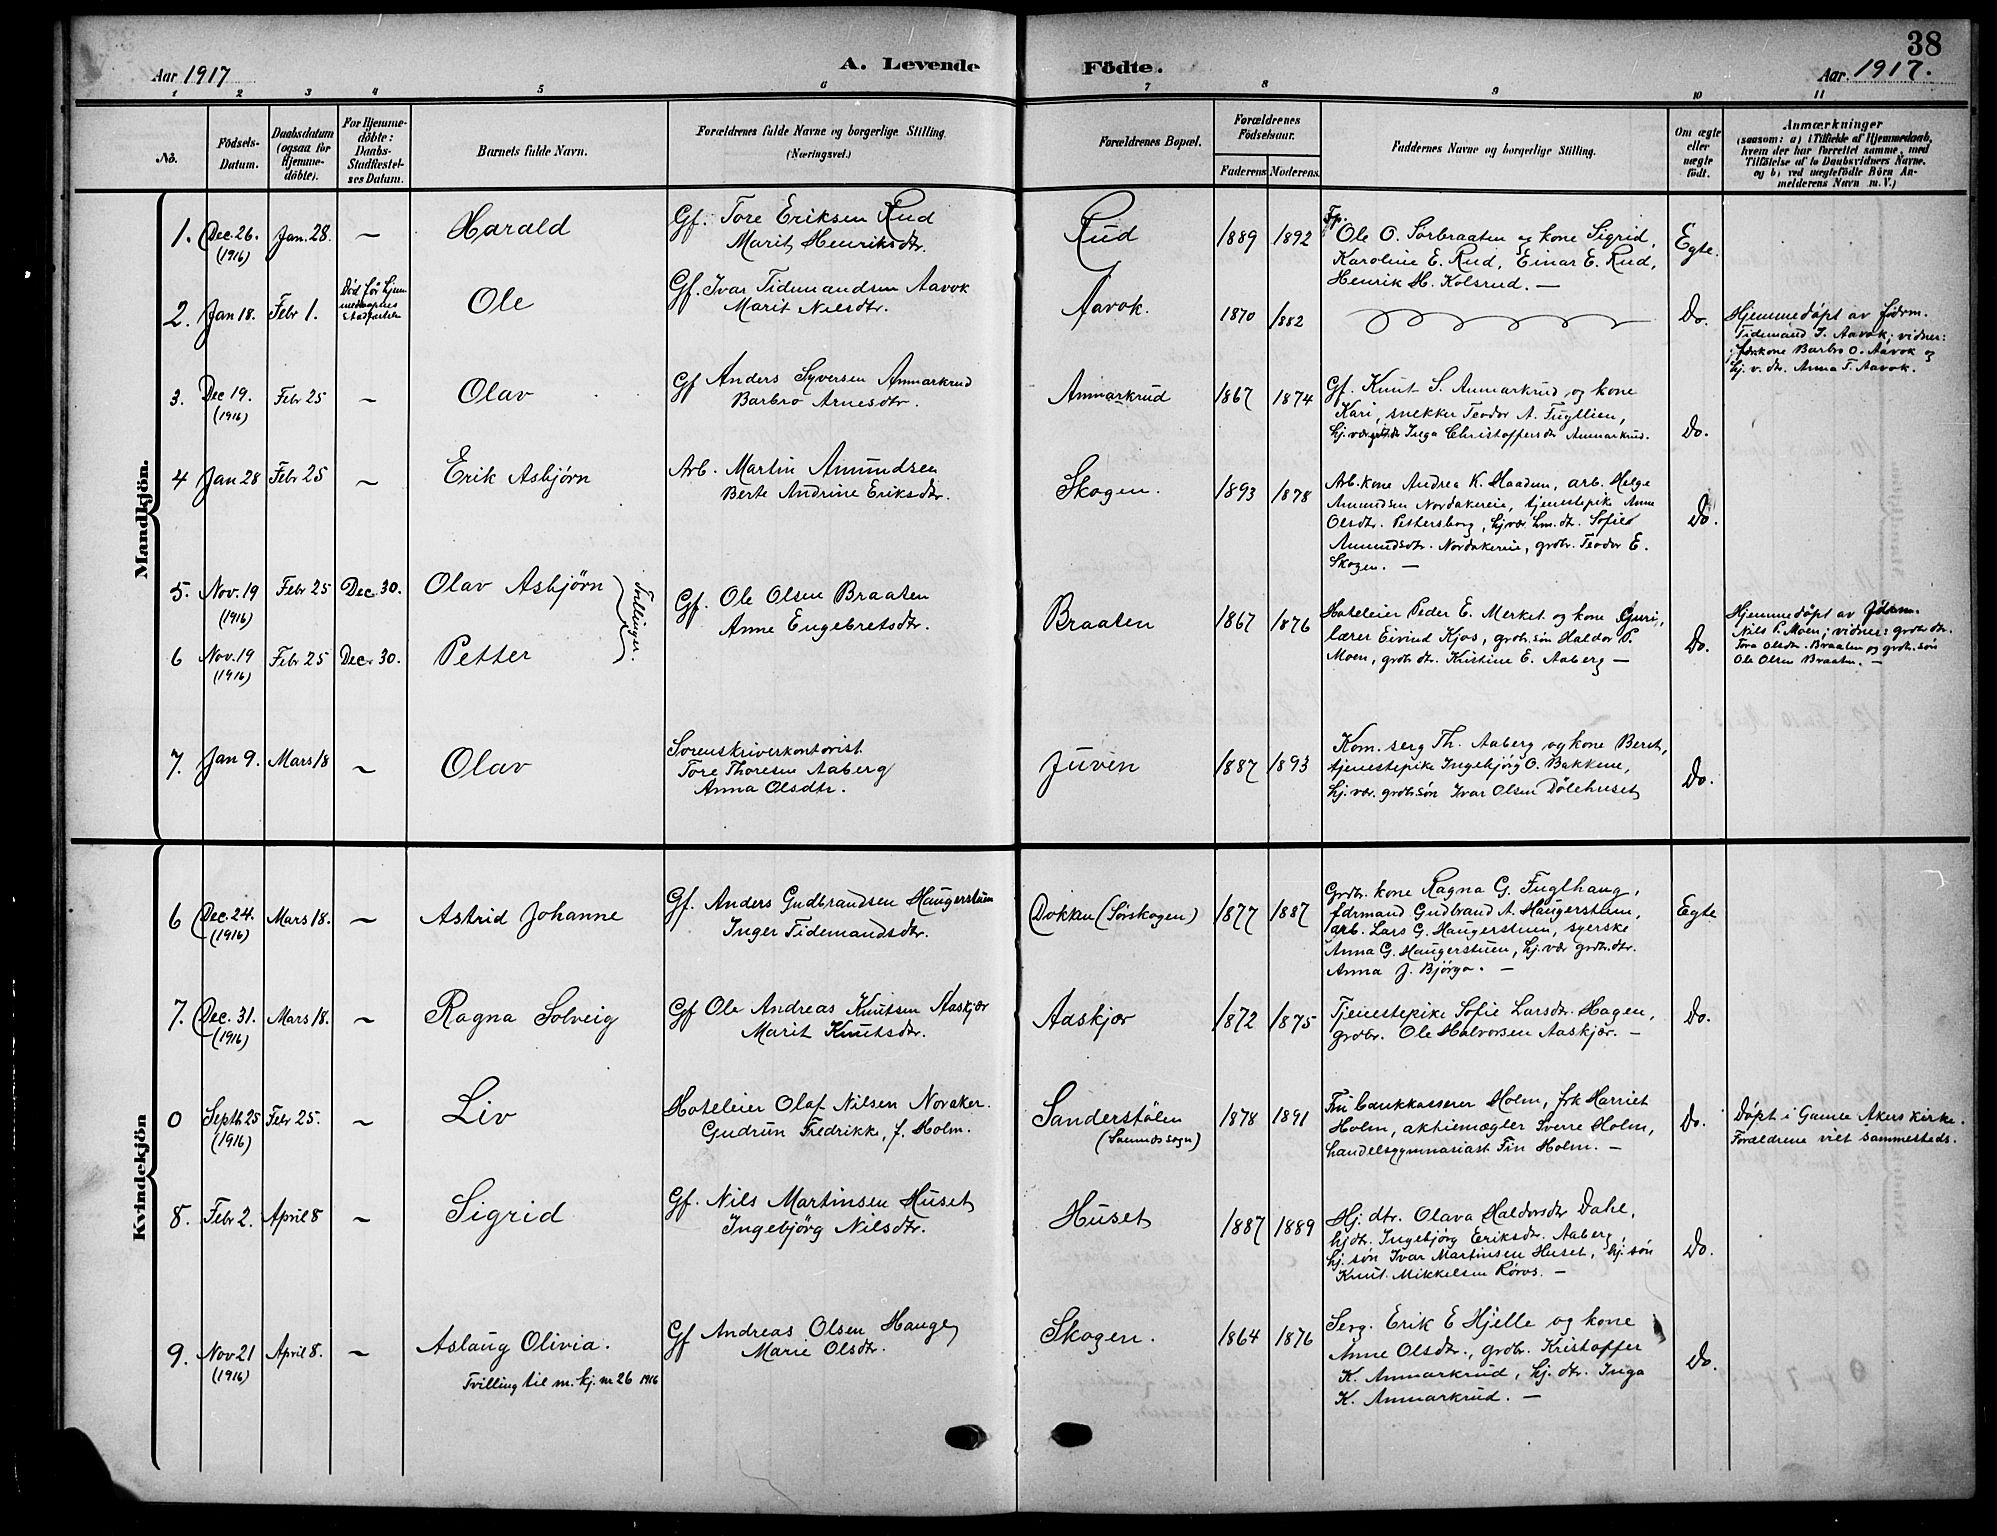 38
A. Levende Födte.
Aar 1917
Aar 1917.
1 2 3 4 5 6 7 8 9 10 11
No.
Födsels-
Datum.
Daabsdatum
(ogsaa for
Hjemme-
döbte).
For Hjemme-
döbte:
Daabs-
Stadfæstel-
ses Datum.
Barnets fulde Navn.
Forældrenes fulde Navne og borgerlige Stilling.
(Næringsvei.)
Forældrenes Bopæl.
Forældrenes
Födselsaar.
Faderens Moderens
Faddernes Navne og borgerlige Stilling.
Om ægte
eller
uægte
födt.
Anmærkninger
(saasom: a) i Tilfælde af Hjemmedaab,
hvem der har forrettet samme, med
Tilföielse af to Daabsvidners Navne.
og b) ved uægtefödte Börn An-
melderens Navn m. V.)
Mandkjön.
1. Dec. 26. Jan. 28. —
(1916)
Harald
Gf. Tore Eriksen Rud
Marit Henriksdtr.
Rud
1889 1892
Fp.
Ole O. Sørbraaten og kone Sigrid,
Karoline E. Rud, Einar E. Rud,
Henrik H. Kolsrud. —
Egte.
2. Jan 18. Febr 1.
Død før hjem
medaapens
stadfæstelse
Ole
Gf. Ivar Tidemandsen Aavok
Marit Nilsdtr.
Aavok.
1870 1882
Do.
Hjemmedøpt av
Tidemand I. Aavok; vidner:
kone Barbro O. Aavok og
hj. v. dtr. Anna T. Aavok.
3. Dec 19. Febr 25 —
(1916)
Olav
Gf Anders Syversen Anmarkrud
Barbro Arnesdtr.
Anmarkrud
1867 1874
Gf. Knut S. Anmarkrud og kone
Kari, snekker Teodor A. Fugllien,
Inga Christoffersdtr Anmarkrud.
Do.
4 Jan 28 Febr 25 —
Erik Asbjørn
Arb. Martin Amundsen
Berte Andrine Eriksdtr.
Skogen.
1893 1878
Arb. kone Andrea K. Haadem, arb. Helge
Amundsen Nordakereie, tjenestepike Anne
Olsdtr. Pettersborg, hj.vær. hm. dtr. Sofie
Amundsdtr. Nordakereie, grdbr. Teodor E.
Skogen. —
Do.
5. Nov. 19 Febr 25 Dec. 30.
(1916)
Olav Asbjörn
6 Nov. 19 Febr 25 Dec. 30.
(1916)
Petter
Tvillinger.
Gf. Ole Olsen Braaten
Anne Engebretsdtr.
Braaten
1867 1876
Hoteleier Peder E. Merket og kone Guri,
lærer Eivind Kjos, grdbr. søn Haldor P.
Moen, grdbr. dtr. Kristine E. Aaberg —
Do.
Hjemmedøpt av
Nils P. Moen; vidner: grdbr. dtr.
Tora Olsdtr. Braaten og grdbr. søn
Ole Olsen Braaten. —
7. Jan 9. Mars 18 —
Olav
Sorenskriverkontorist
Tore Thoresen Aaberg
Anna Olsdtr.
Juven
1887 1893
Kom. serg Th. Aaberg og kone Beret,
tjenestepike Ingebjørg O. Bakkene,
hj. vær. grdbr. søn Ivar Olsen Dölehuset
Do.
Kvindekjön
6 Dec. 24. Mars 18. —
(1916)
Astrid Johanne
Gf. Anders Gudbrandsen Haugerstuen
Inger Tidemandsdtr.
Dokken (Sørskogen)
1877 1887
Grdbr. kone Ragna G. Fuglhaug,
fdrmand Gudbrand A. Haugerstuen,
arb. Lars G. Haugerstuen, syerske
Anna G. Haugerstuen, hj. vær grdbr. dtr.
Anna J. Bjørgo. —
Egte
7. Dec. 31. Mars 18. —
(1916)
Ragna Solveig
Gf Ole Andreas Knutsen Aaskjær
Marit Knutsdtr.
Aaskjær
1872 1875
Tjenestepike Sofie Larsdtr. Hagen,
grdbr. Ole Halvorsen Aaskjær. —
Do.
0 Septb 25 Febr 25. —
(1916)
Liv
Hoteleier Olaf Nilsen Novaker.
Gudrun Fredrikke, f. Holm.
Sanderstølen
(Aurdals sogn)
1878 1891
Fru bankkasserer Holm, frk Harriet
Holm, aktiemægler Sverre Holm,
handelsgymnasiast Fin Holm. —
Do.
Døpt i Gamle Akers kirke.
Forældrene viet sammesteds.
8. Febr 2. April 8 —
Sigrid
Gf. Nils Martinsen Huset
Ingebjörg Nilsdtr.
Huset
1887 1889
Hj. dtr. Olava Haldorsdtr Dahl,
hj dtr. Ingebjörg Eriksdtr. Aaberg,
hj. søn Ivar Martinsen Huset, hj. søn
Knut Mikkelsen Røros. —
Do.
9. Nov 21 April 8. —
(1916)
Aslaug Olivia.
Tvilling til m. kj. nr 26 1916
Gf Andreas Olsen Hauge
Marie Olsdtr.
Skogen.
1864 1876
Serg. Erik E Hjelle og kone
Anne Olsdtr., grdbr. Kristoffer
K. Anmarkrud, hj. dtr. Inga
K. Anmarkrud. —
Do.